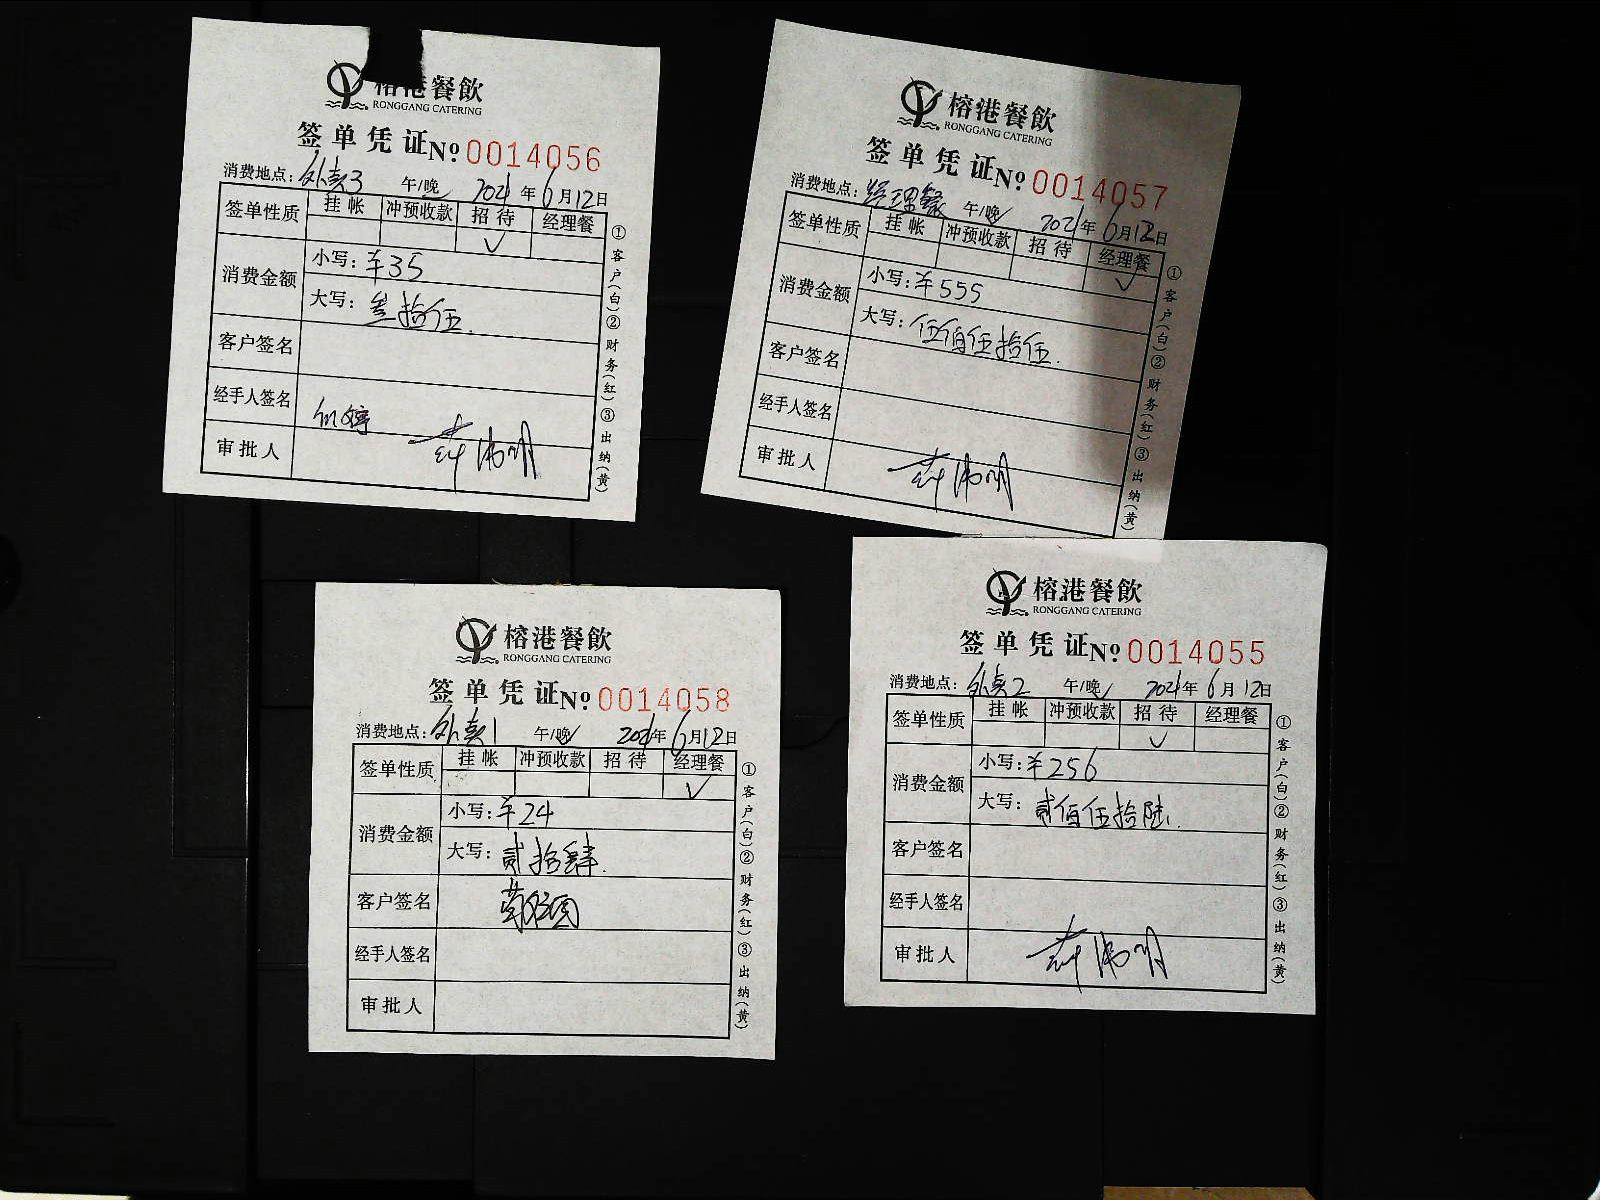 榕港餐飲
RONGGANG CATERING
签单凭证 Nº 0014056
消费地点：外卖3 午/晚✓ 2021年6月12日
签单性质 挂帐 冲预收款 招待 经理餐
✓
消费金额 小写：￥35
大写：叁拾伍.
客户签名
经手人签名
审批人
①客户(白)②财务(红)③出纳(黄)
榕港餐飲
RONGGANG CATERING
签单凭证 Nº 0014057
消费地点：经理餐 午/晚✓ 2021年6月12日
签单性质 挂帐 冲预收款 招待 经理餐
✓
消费金额 小写：￥555
大写：伍佰伍拾伍.
客户签名
经手人签名
审批人
①客户(白)②财务(红)③出纳(黄)
榕港餐飲
RONGGANG CATERING
签单凭证 Nº 0014058
消费地点：外卖1 午/晚✓ 2021年6月12日
签单性质 挂帐 冲预收款 招待 经理餐
✓
消费金额 小写：￥24
大写：贰拾肆.
客户签名
经手人签名
审批人
①客户(白)②财务(红)③出纳(黄)
榕港餐飲
RONGGANG CATERING
签单凭证 Nº 0014055
消费地点：外卖2 午/晚✓ 2021年6月12日
签单性质 挂帐 冲预收款 招待 经理餐
✓
消费金额 小写：￥256
大写：贰佰伍拾陆.
客户签名
经手人签名
审批人
①客户(白)②财务(红)③出纳(黄)